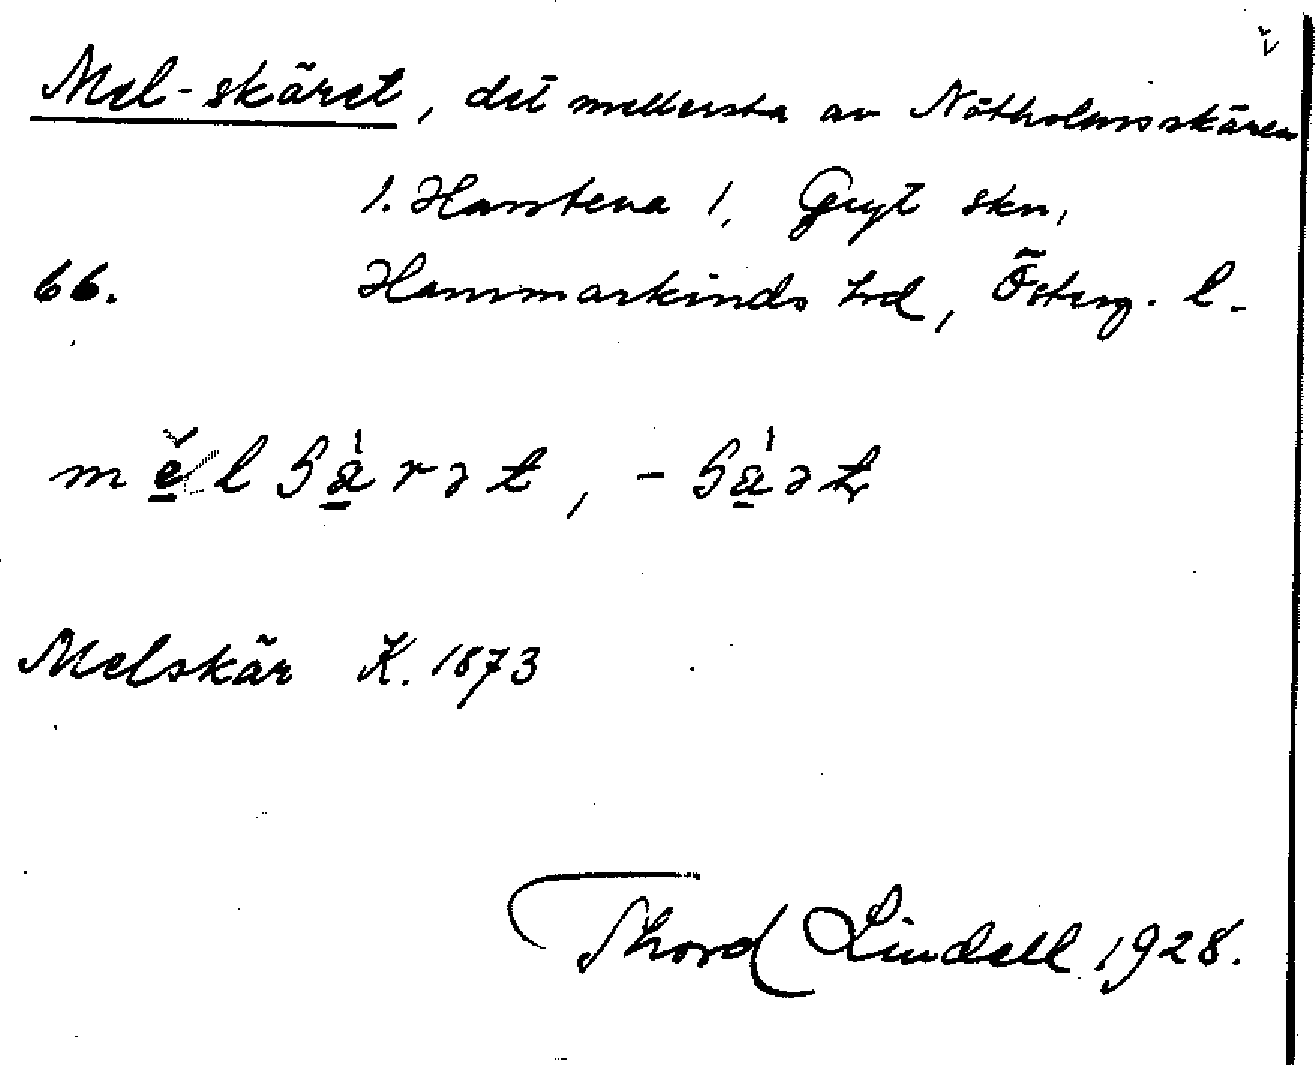 Mel-skäret, det mellersta av Nötholmsskären
1. Harstena 1, Gryt skn,
66. Hammarkinds hd, Österg. l.
Melskär K. 1873
Thord Lindell 1928.